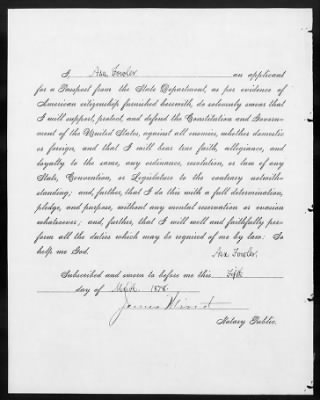 I, Asa Fowler an applicant
for a Passport from the State Department, as per evidence of
American citizenship furnished herewith, do solemnly swear that
I will support, protect, and defend the Constitution and Govern-
ment of the United States, against all enemies, whether domestic
or foreign, and that I will bear true faith, allegiance, and
loyalty to the same, any ordinance, resolution, or law of any
State, Convention, or Legislature to the contrary notwith-
standing; and, further, that I do this with a full determination,
pledge, and purpose, without any mental reservation or evasion
whatsoever; and, further, that I will well and faithfully per-
form all the duties which may be required of me by law: So
help me God.
Asa Fowler.
Subscribed and sworn to before me this fifth
day of 1878.
James
Notary Public.